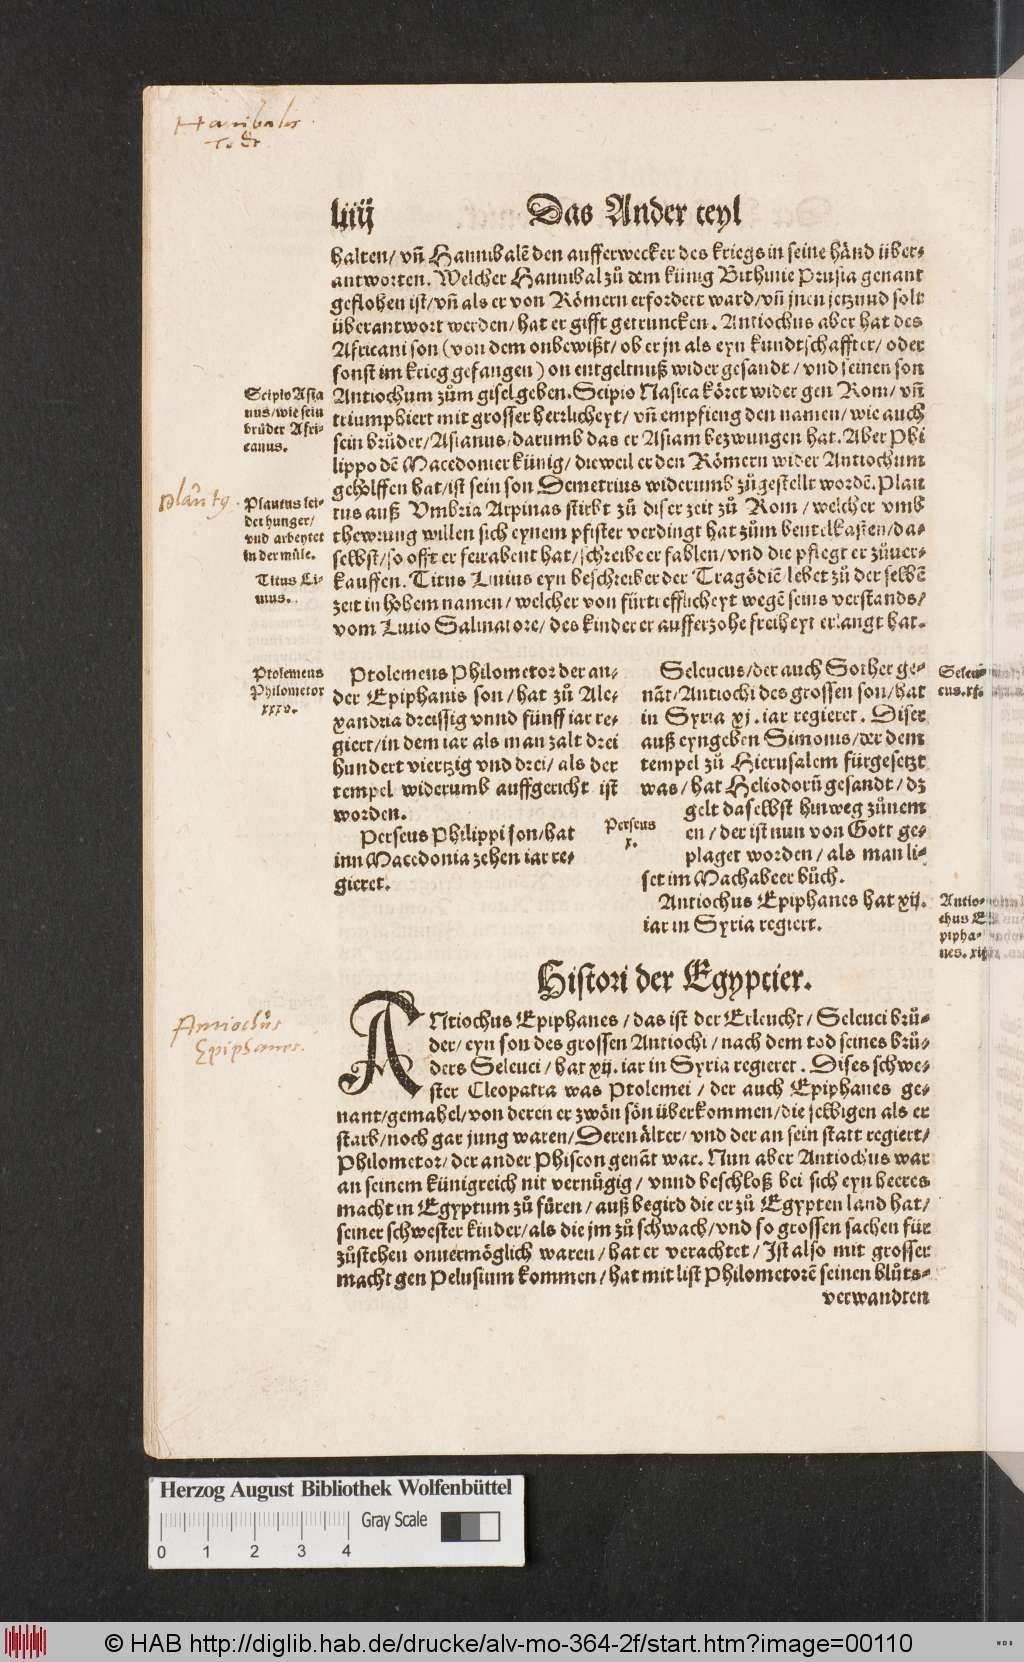 Hanibalis
Tods
liiij
Das Ander teyl
halten/ vñ Hannibalẽ den aufferwecker des kriegs in seine hånd über-
antworten. Welcher Hannibal zů dem künig Bithinie Prusia genant
geflohen ist/ vñ als er von Römern erfordert ward/ vñ jnen jetzund solt
überantwort werden/ hat er gifft getruncken. Antiochus aber hat des
Africani son (von dem onbewißt/ ob er jn als eyn kundtschaffter/ oder
sonst im krieg gefangen) on entgeltnuß wider gesandt/ vnd seinen son
Antiochum zům gisel geben. Scipio Nasica köret wider gen Rom/ vñ
triumphiert mit grosser herrlicheyt/ vñ empfieng den namen/ wie auch
sein brůder/ Asianus/ darumb das er Asiam bezwungen hat. Aber Phi
lippo dẽ Macedonier künig/ dieweil er den Römern wider Antiochum
geholffen hat/ ist sein son Demetrius widerumb zůgestellt wordẽ. Plau
tus auß Vmbria Arpinas stirbt zů diser zeit zů Rom/ welcher vmb
thewrung willen sich eynem pfister verdingt hat zům beutelkasten/ da-
selbst/ so offt er feirabent hat/ schreibe er fablen/ vnd die pflegt er zůuer-
kauffen. Titus Liuius eyn beschreiber der Tragödiẽ lebet zů der selbẽ
zeit in hohem namen/ welcher von fürtrefflicheyt wegẽ seins verstands/
vom Liuio Salinatore/ des kinder er aufferzohe freiheyt erlangt hat.
Scipio Asia
nus/ wie sein
brůder Afri-
canus.
Plautus
Plautus lei-
det hunger/
vnd arbeytet
in der müle.
Titus Li-
uius.
Ptolemeus
Philometor
xxxv.
Ptolemeus Philometor der an-
der Epiphanis son/ hat zů Ale-
xandria dreissig vnnd fünff iar re-
giert/ in dem iar als man zalt drei
hundert viertzig vnd drei/ als der
tempel widerumb auffgericht ist
worden.
Perseus Philippi son/ hat
inn Macedonia zehen iar re-
gieret.
Perseus
x.
Seleucus/ der auch Sother ge-
nãt/ Antiochi des grossen son/ hat
in Syria xj. iar regieret. Diser
auß eyngeben Simonis/ der dem
tempel zů Hierusalem fürgesetzt
was/ hat Heliodorũ gesandt/ dz
gelt daselbst hinweg zůnem
en/ der ist nun von Gott ge-
plaget worden/ als man li-
set im Machabeer bůch.
Antiochus Epiphanes hat xij.
iar in Syria regiert.
Seleu-
cus. xj.
Antio-
chus E-
pipha-
nes. xij.
Histori der Egyptier.
Antiochus
Epiphanes.
ANtiochus Epiphanes/ das ist der Erleucht/ Seleuci brů-
der/ eyn son des grossen Antiochi/ nach dem tod seines brů-
ders Seleuci/ hat xij. iar in Syria regieret. Dises schwe-
ster Cleopatra was Ptolemei/ der auch Epiphanes ge-
nant/ gemahel/ von deren er zwön sön überkommen/ die selbigen als er
starb/ noch gar jung waren/ Deren ålter/ vnd der an sein statt regiert/
Philometor/ der ander Phiscon genãt war. Nun aber Antiochus war
an seinem künigreich nit vernügig/ vnnd beschloß bei sich eyn heeres
macht in Egyptum zů fůren/ auß begird die er zů Egypten land hat/
seiner schwester kinder/ als die jm zů schwach/ vnd so grossen sachen für
zůstehen onuermöglich waren/ hat er verachtet/ Ist also mit grosser
macht gen Pelusium kommen/ hat mit list Philometorẽ seinen blůts-
verwandten
Herzog August Bibliothek Wolfenbüttel
Gray Scale
0 1 2 3 4
© HAB http://diglib.hab.de/drucke/alv-mo-364-2f/start.htm?image=00110